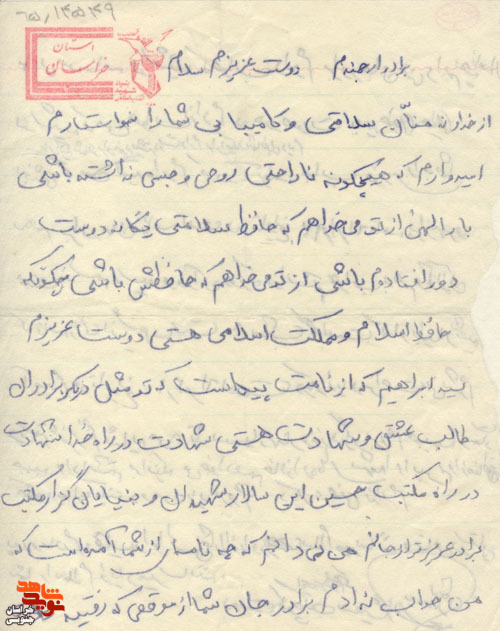 ۶۵/۱۳۵۴۴۹
استان
خراسان
برادر ارجمندم دوست عزیزم سلام
از خداوند منان سلامتی و کامیابی شما را خواستارم
امیدوارم که هیچگونه ناراحتی روحی و جسمی نداشته باشی
بارالهی از تو می خواهم که حافظ سلامتی یگانه دوست
دور افتاده ام باشی از تو می خواهم که حافظش باشی همچنگونه
حافظ اسلام و مملکت اسلامی هستی دوست عزیزم
سید ابراهیم که از نامت پیداست که تو مثل دیگر برادران
طالب عشق و شهادت هستی شهادت در راه خدا شهادت
در راه مکتب حسین این سالار شهیدان و بنیانگزار مکتب
برادر عزیزتر از جانم من نمی دانم که چه نامه ای از شما آمده است که
من جواب نداده ام برادر جان شما از موقعی که رفتید
شاهد
نوید
خراسان
جنوبی